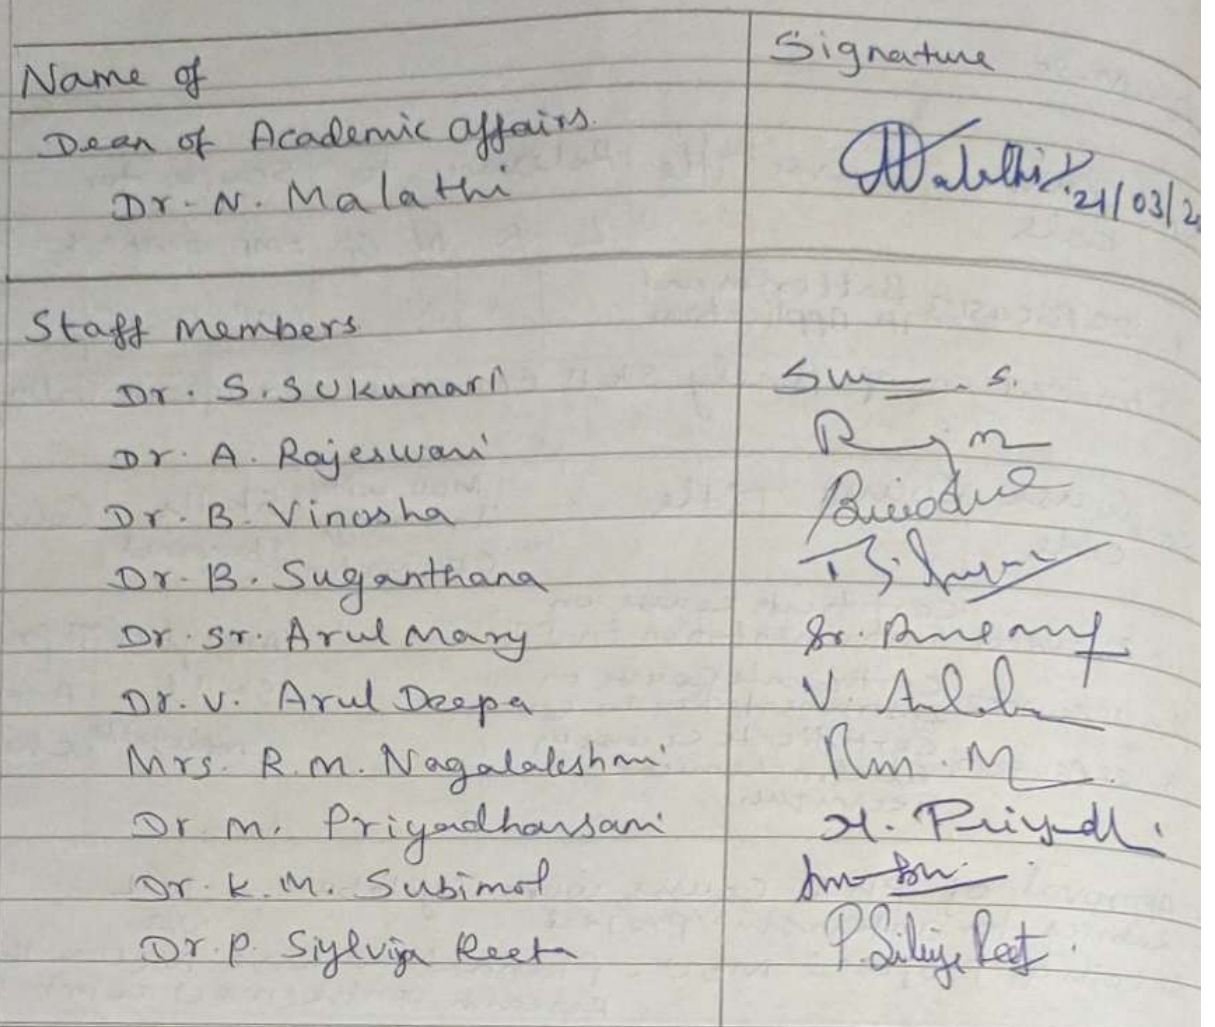 Name of Signature
Dean of Academic affairs.
Dr. N. Malathi Malathi 21/03/2
Staff Members
Dr. S. SUkumari S.
Dr. A. Rajeswari
Dr. B. Vinosha
Dr. B. Suganthana
Dr. Sr. Arul Mary Sr.
Dr. V. Arul Deepa V.
Mrs. R.M. Nagalakshmi Rm. M
Dr. M. Priyadharsani M. Priyadh
Dr. K. M. Subimol
Dr. P. Siylviya Reeta P. Reet